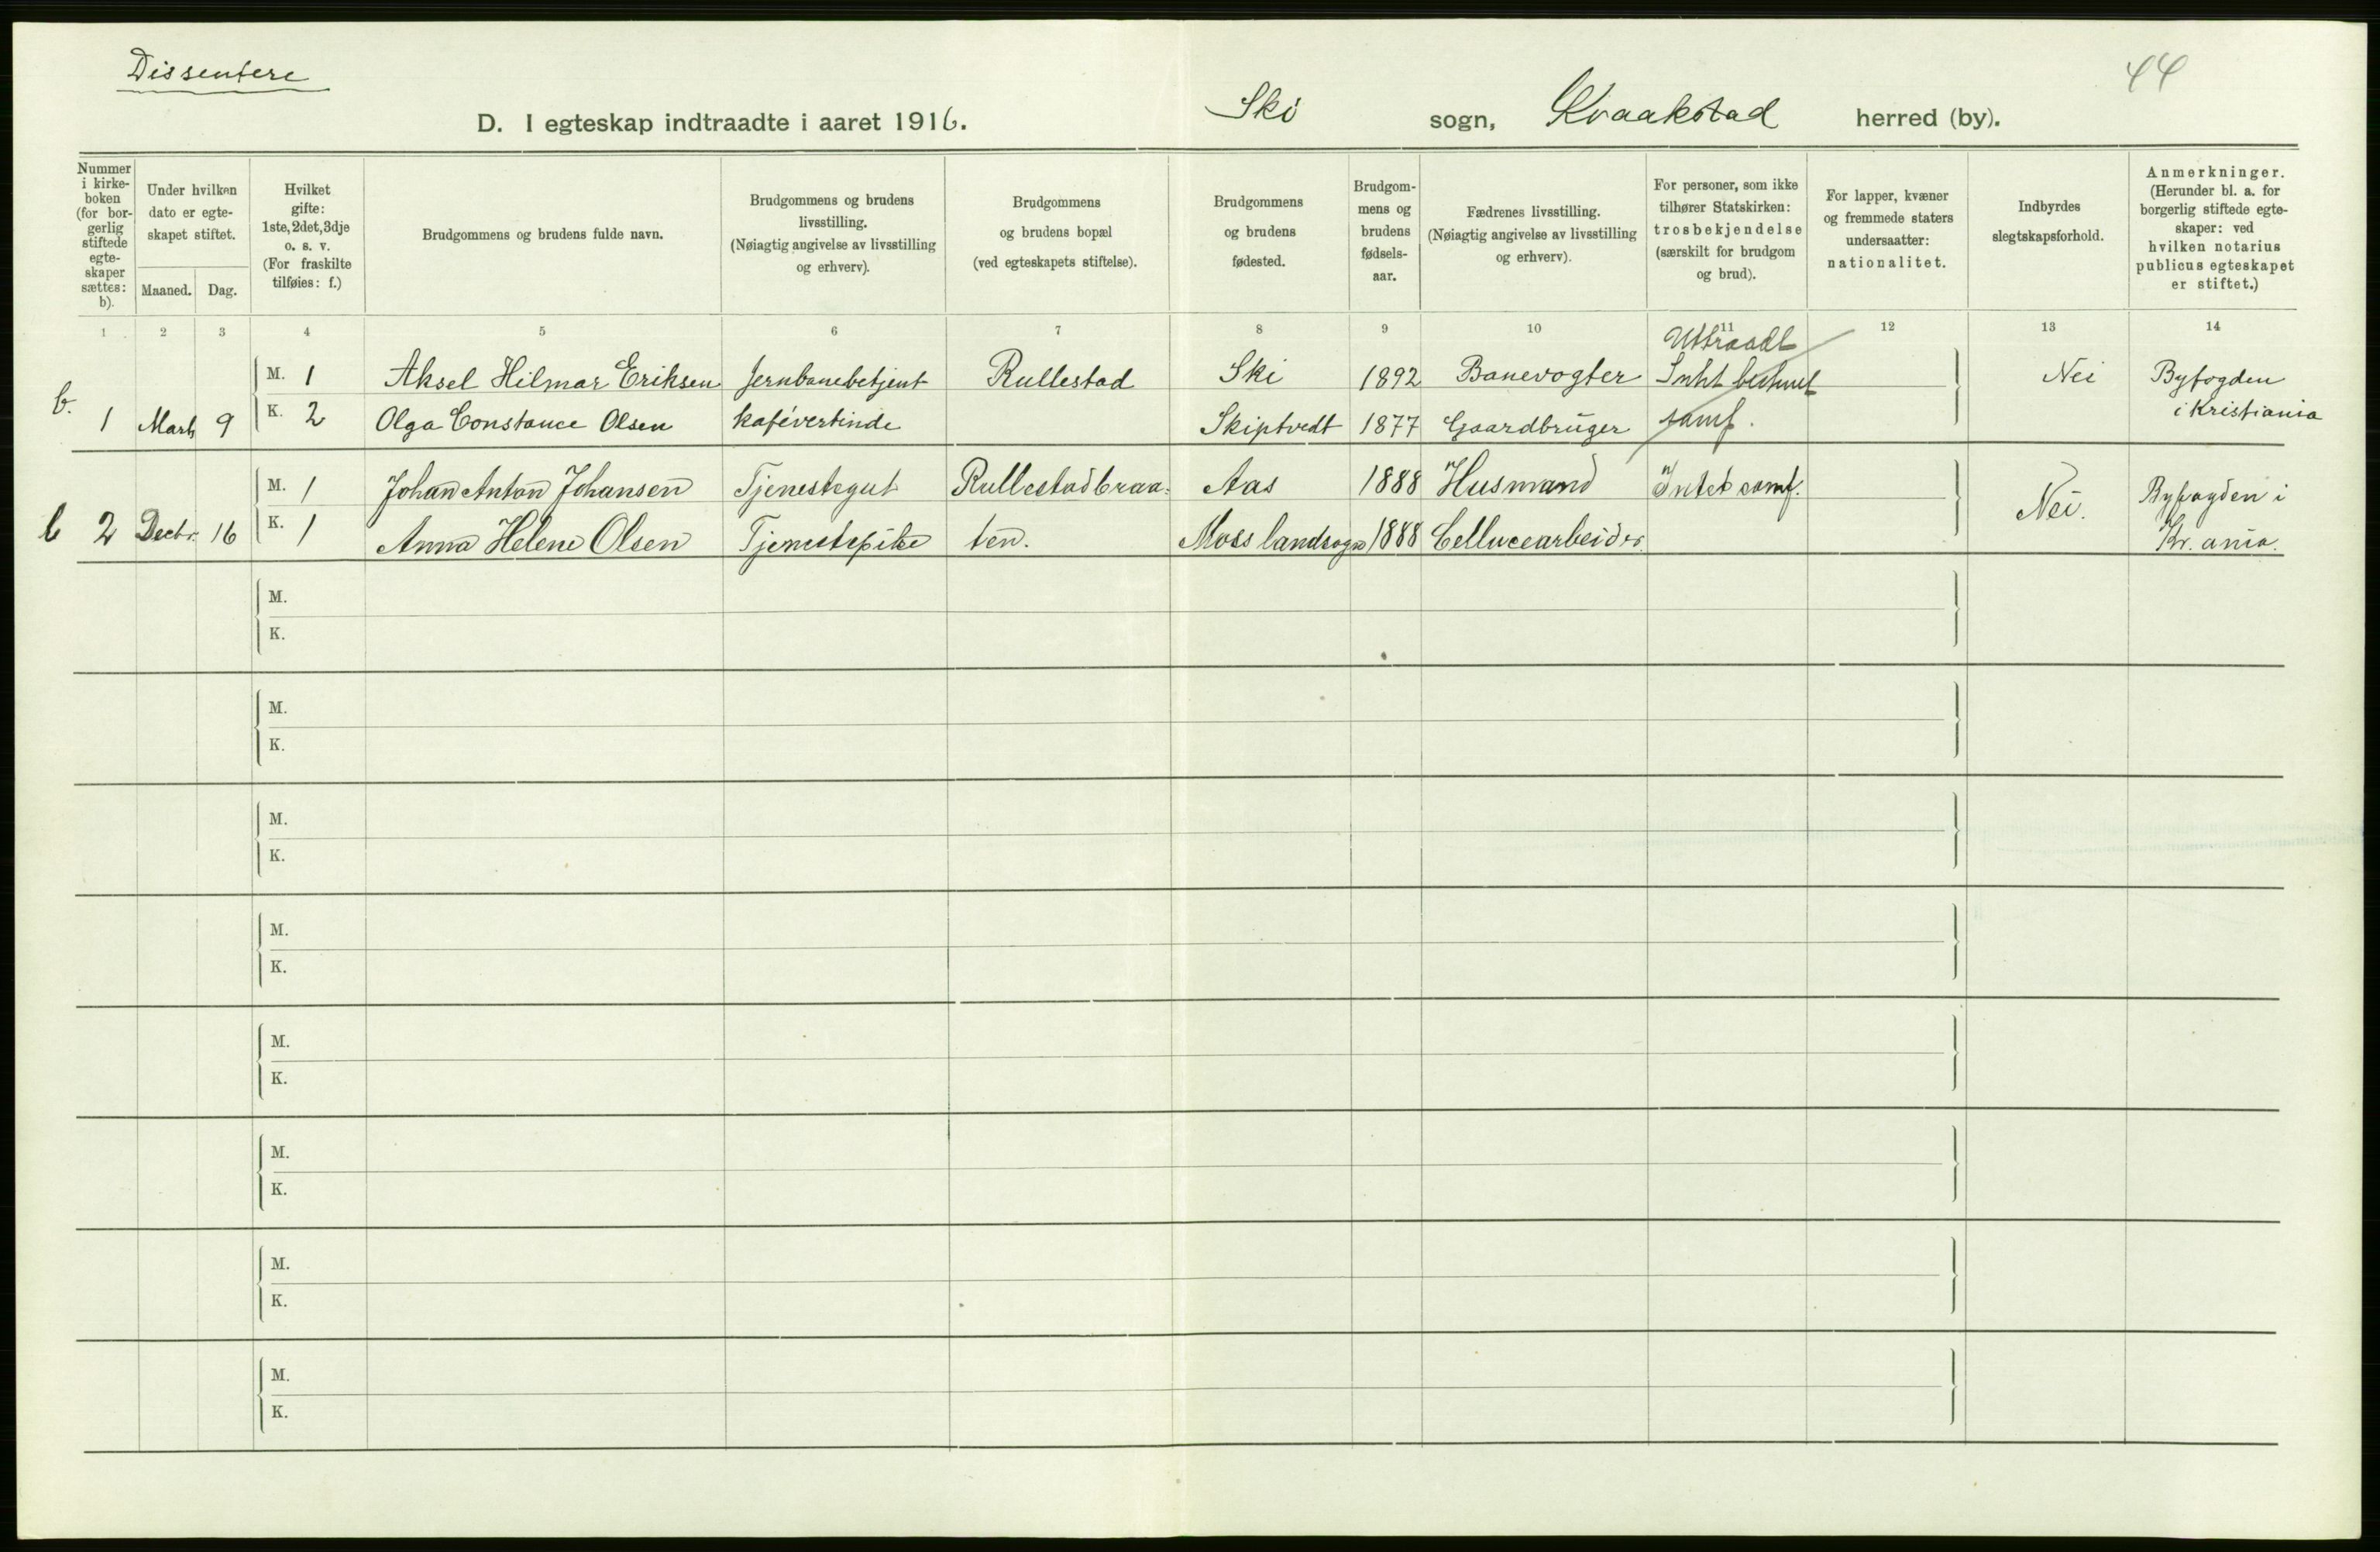 Dissentere
44
D. I egteskap indtraadte i aaret 1916. Ski sogn, Kraakstad herred (by).
Nummer i kirke- boken (for bor- gerlig stiftede egte- skaper sættes: b).
Under hvilken dato er egte- skapet stiftet.
Maaned. Dag.
Hvilket gifte: 1ste, 2det, 3dje o. s. v. (For fraskilte tilføies: f.)
Brudgommens og brudens fulde navn.
Brudgommens og brudens livsstilling. (Nøiagtig angivelse av livsstilling og erhverv).
Brudgommens og brudens bopæl (ved egteskapets stiftelse).
Brudgommens og brudens fødested.
Brudgom- mens og brudens fødsels- aar.
Fædrenes livsstilling. (Nøiagtig angivelse av livsstilling og erhverv).
For personer, som ikke tilhører Statskirken: trosbekjendelse (særskilt for brudgom og brud).
For lapper, kvæner og fremmede staters undersaatter: nationalitet.
Indbyrdes slegtskapsforhold.
Anmerkninger. (Herunder bl. a. for borgerlig stiftede egte- skaper: ved hvilken notarius publicus egteskapet er stiftet.)
1 2 3 4 5 6 7 8 9 10 11 12 13 14
Uttraadt
M. 1 Aksel Hilmar Eriksen Jernbanebetjent Rullestad Ski 1892 Banevogter Intet bestemt Nei Byfogden
b. 1 Marts 9 K. 2 Olga Constance Olsen Kafévertinde Skiptvedt 1877 Gaardbruger samf. i Kristiania
M. 1 Johan Anton Johansen Tjenestegut Rullestadbraa= Aas 1888 Husmand Intet samf. Byfogden i
b 2 Decbr. 16 K. 1 Anna Helene Olsen Tjenestepike ten. Moss landsogn 1888 Cellucearbeider Nei. Kr. ania.
M.
K.
M.
K.
M.
K.
M.
K.
M.
K.
M.
K.
M.
K.
M.
K.